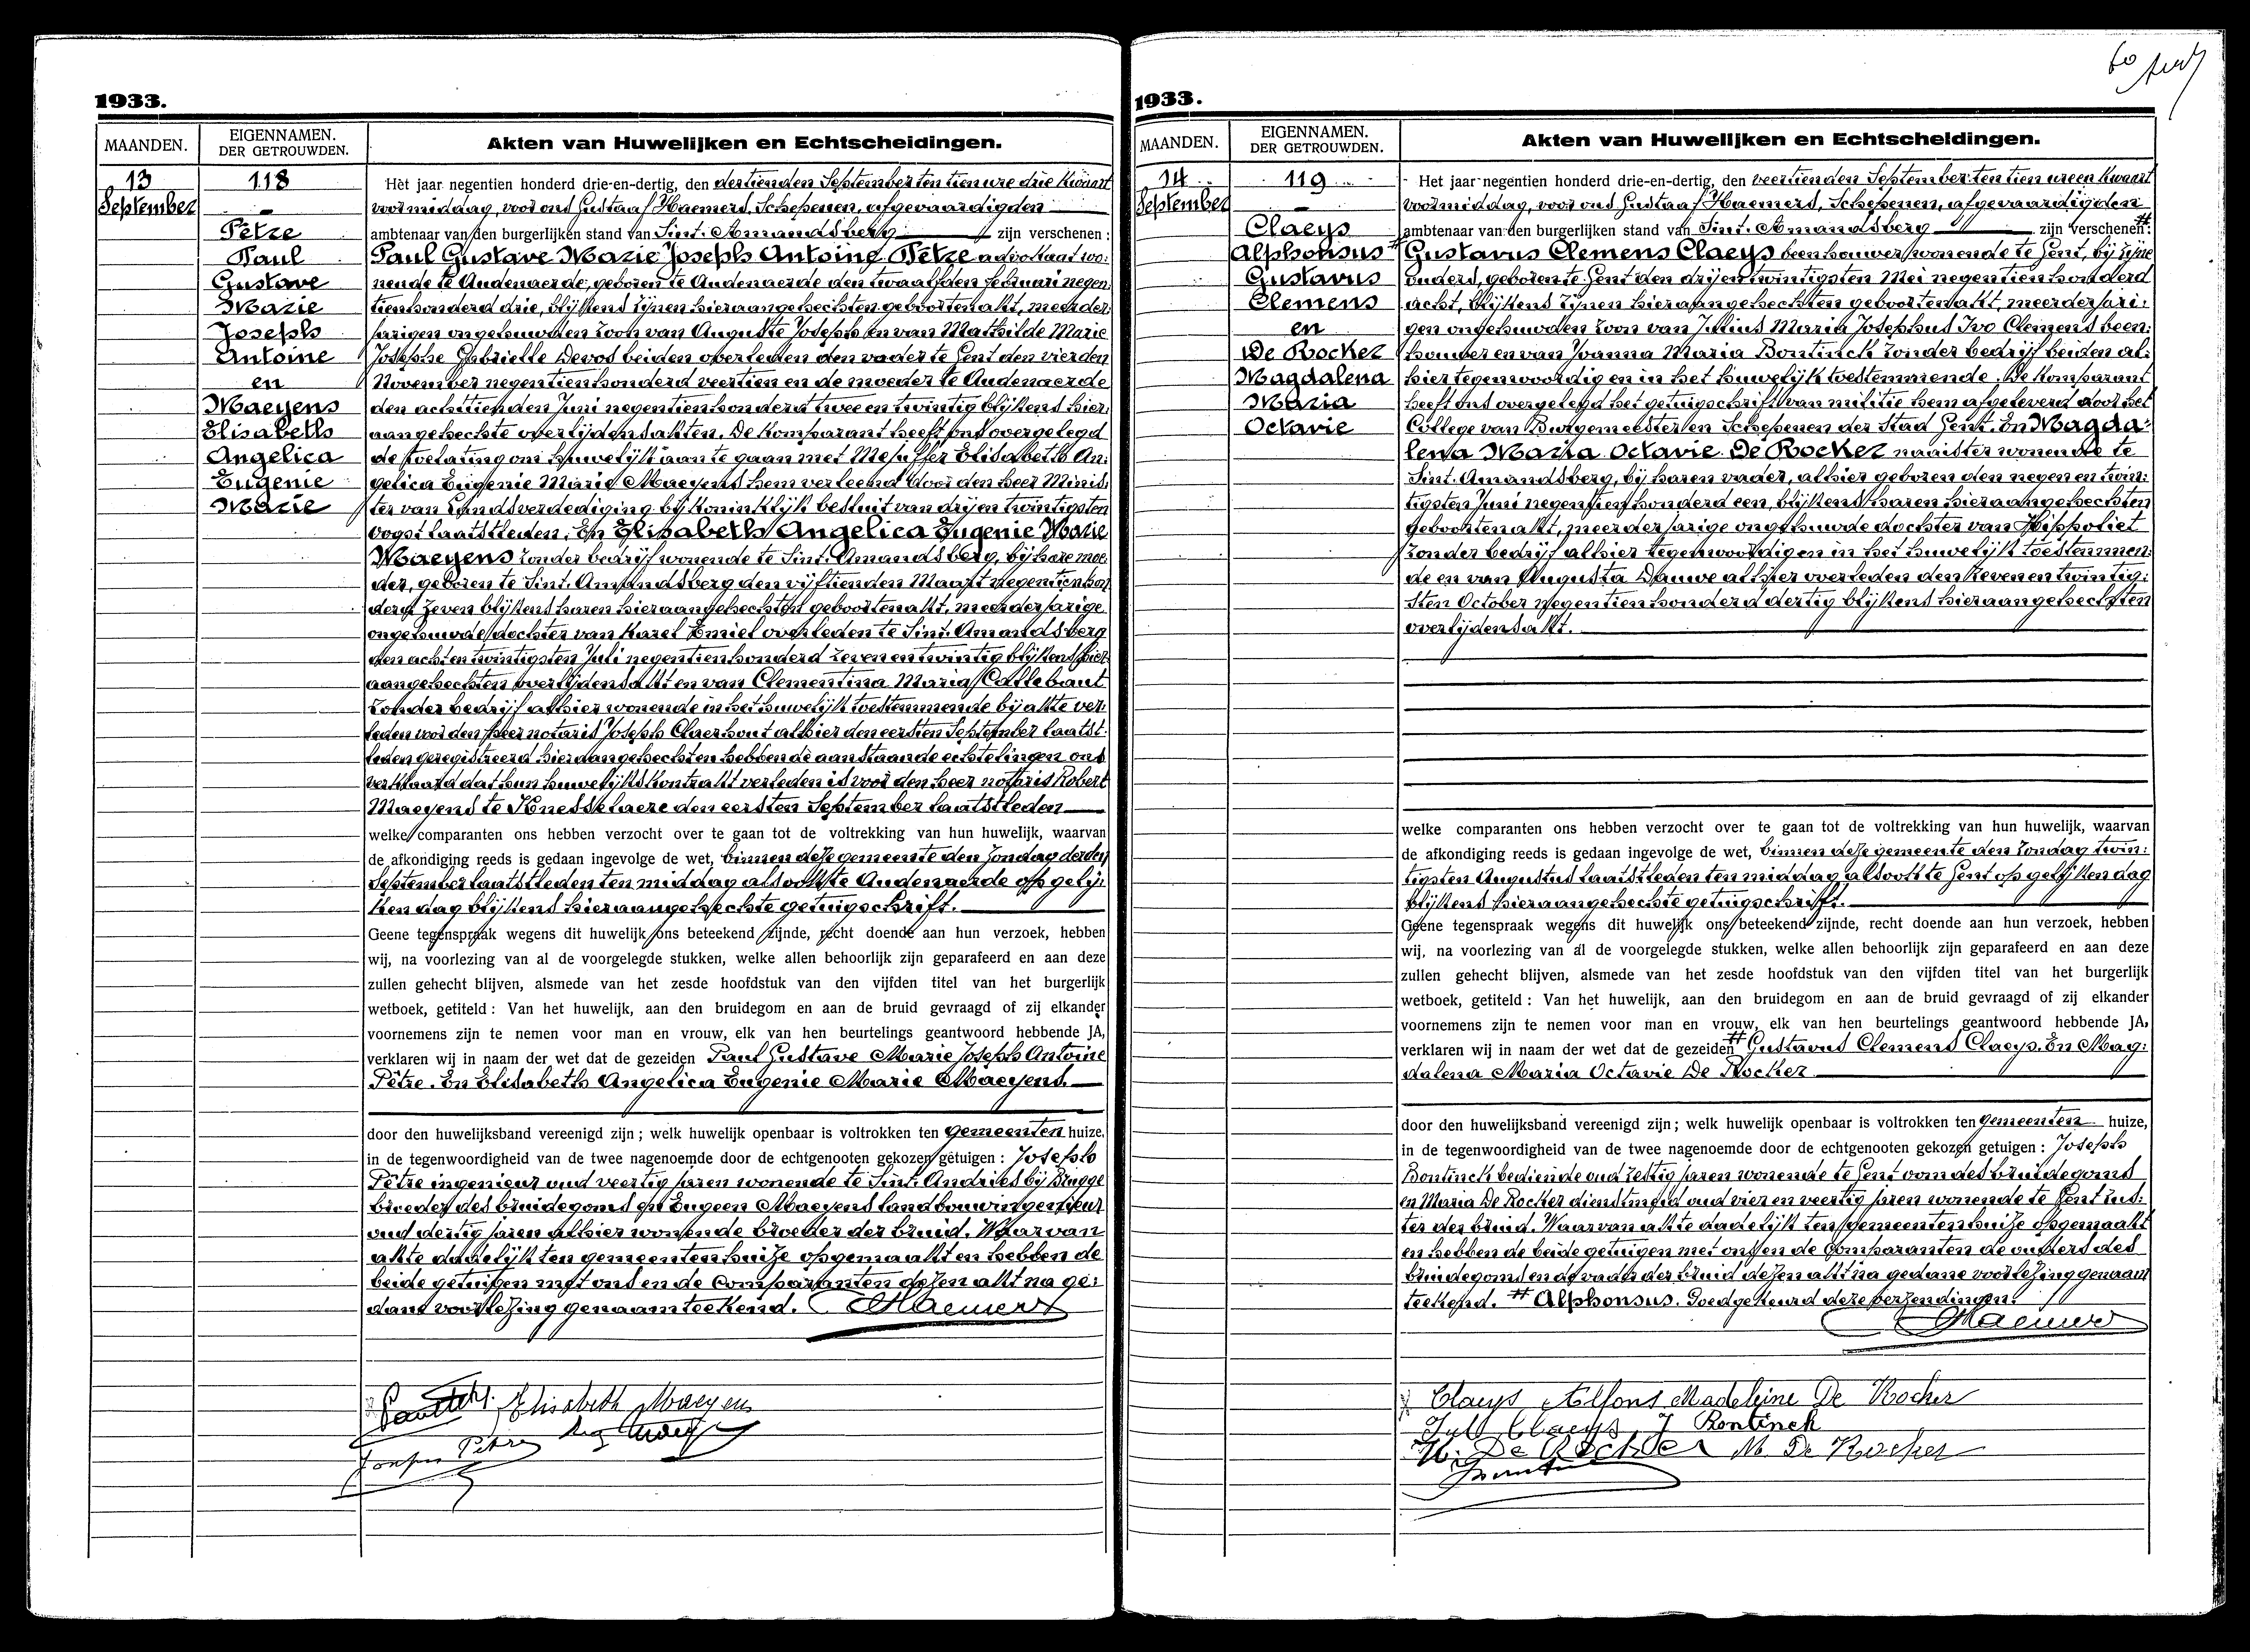 60
1933.
MAANDEN.
EIGENNAMEN.
DER GETROUWDEN.
Akten van Huwelijken en Echtscheidingen.
13
September
118
Pètre
Paul
Gustave
Marie
Joseph
Antoine
en
Maeyens
Elisabeth
Angelica
Eugenie
Marie
Het jaar negentien honderd drie-en-dertig, den dertienden September ten tien ure drie kwaart
voormiddag, voor ons Gustaaf Haemers, Schepenen, afgevaardigden
ambtenaar van den burgerlijken stand van Sint. Amandsberg zijn verschenen :
Paul Gustave Marie Joseph Antoine Pètre advokaat wo:
nende te Audenaerde, geboren te Audenaerde den twaalfden Februari negen:
tienhonderd drie, blijkens zijnen hieraangehechten geboortenakt, meerder:
jarigen ongehuwden zoon van Auguste Joseph en van Mathilde Marie
Josephe Gabrielle Devos beiden overleden den vader te Gent den vierden
November negentienhonderd veertien en de moeder te Audenaerde
den achttienden Juni negentienhonderd twee en twintig blijkens hier:
aangehechte overlijdensakten. De komparant heeft ons overgelegd
de toelating om huwelijk aan te gaan met Mejuffer Elisabeth An:
gelica Eugenie Marie Maeyens hem verleend door den heer Minis:
ter van Landsverdediging bij koninklijk besluit van drij en twintigsten
oogst laatstleden. En Elisabeth Angelica Eugenie Marie
Maeyens zonder bedrijf wonende te Sint. Amandsberg, bij hare moe:
der, geboren te Sint. Amandsberg den vijftienden Maart negentienhon:
derd zeven blijkens haren hieraangehechten geboortenakt, meerderjarige
ongehuwde dochter van Karel Emiel overleden te Sint. Amandsberg
den acht en twintigsten Juli negentienhonderd zeven en twintig blijkens hier:
aangehechten overlijdensakt en van Clementina Maria Callebaut
zonder bedrijf alhier wonende in het huwelijk toestemmende bij akte ver:
leden voor den heer notaris Joseph Claerhout alhier den eersten September laatst:
leden geregistreerd hieraangehecht en hebben de aanstaande echtelingen ons
verklaard dat hun huwelijkskontrakt verleden is voor den heer notaris Robert
Maeyens te Knesselaere den eersten September laatstleden
welke comparanten ons hebben verzocht over te gaan tot de voltrekking van hun huwelijk, waarvan
de afkondiging reeds is gedaan ingevolge de wet, binnen deze gemeente den Zondag derden
September laatstleden ten middag alsook te Audenaerde op gelij:
ken dag blijkens hieraangehechte getuigschrift.
Geene tegenspraak wegens dit huwelijk ons beteekend zijnde, recht doende aan hun verzoek, hebben
wij, na voorlezing van al de voorgelegde stukken, welke allen behoorlijk zijn geparafeerd en aan deze
zullen gehecht blijven, alsmede van het zesde hoofdstuk van den vijfden titel van het burgerlijk
wetboek, getiteld : Van het huwelijk, aan den bruidegom en aan de bruid gevraagd of zij elkander
voornemens zijn te nemen voor man en vrouw, elk van hen beurtelings geantwoord hebbende JA,
verklaren wij in naam der wet dat de gezeiden Paul Gustave Marie Joseph Antoine
Pètre. En Elisabeth Angelica Eugenie Marie Maeyens.
door den huwelijksband vereenigd zijn ; welk huwelijk openbaar is voltrokken ten gemeenten huize,
in de tegenwoordigheid van de twee nagenoemde door de echtgenooten gekozen getuigen : Joseph
Pètre ingenieur oud veertig jaren wonende te Sint. Andries bij Brugge
broeder des bruidegoms en Eugeen Maeyens landbouwingenieur
oud dertig jaren alhier wonende broeder der bruid. Waarvan
akte dadelijk ten gemeentenhuize opgemaakt en hebben de
beide getuigen met ons en de Comparanten dezen akt na ge:
dane voorlezing genaamteekend. Haemers
Elisabeth Maeyens
Joseph Pètre
1933.
MAANDEN.
EIGENNAMEN.
DER GETROUWDEN.
Akten van Huwelijken en Echtscheidingen.
14
September
119
Claeys
Alphonsus #
Gustavus
Clemens
en
De Rocker
Magdalena
Maria
Octavie
Het jaar negentien honderd drie-en-dertig, den veertienden September ten tien ure en kwaart
voormiddag, voor ons Gustaaf Haemers, Schepenen, afgevaardigden
ambtenaar van den burgerlijken stand van Sint. Amandsberg zijn verschenen : #
Gustavus Clemens Claeys beenhouwer wonende te Gent, bij zijne
ouders, geboren te Gent den drij en twintigsten Mei negentienhonderd
acht, blijkens zijnen hieraangehechten geboortenakt, meerderjari:
gen ongehuwden zoon van Julius Maria Josephus Ivo Clemens been:
houwer en van Joanna Maria Bontinck zonder bedrijf beiden al:
hier tegenwoordig en in het huwelijk toestemmende. De komparant
heeft ons overgelegd het getuigschrift van militie hem afgeleverd door het
College van Burgemeester en Schepenen der Stad Gent. En Magda:
lena Maria Octavie De Rocker naaister wonende te
Sint. Amandsberg, bij haren vader, alhier geboren den negen en twin:
tigsten Juni negentienhonderd een, blijkens haren hieraangehechten
geboortenakt, meerderjarige ongehuwde dochter van Hippoliet
zonder bedrijf alhier tegenwoordig en in het huwelijk toestemmen:
de en van Augusta Dauwe alhier overleden den zeven en twintig:
sten October negentienhonderd dertig blijkens hieraangehechten
overlijdensakt.
welke comparanten ons hebben verzocht over te gaan tot de voltrekking van hun huwelijk, waarvan
de afkondiging reeds is gedaan ingevolge de wet, binnen deze gemeente den Zondag twin:
tigsten Augustus laatstleden ten middag alsook te Gent op gelijken dag
blijkens hieraangehechte getuigschrift.
Geene tegenspraak wegens dit huwelijk ons beteekend zijnde, recht doende aan hun verzoek, hebben
wij, na voorlezing van al de voorgelegde stukken, welke allen behoorlijk zijn geparafeerd en aan deze
zullen gehecht blijven, alsmede van het zesde hoofdstuk van den vijfden titel van het burgerlijk
wetboek, getiteld : Van het huwelijk, aan den bruidegom en aan de bruid gevraagd of zij elkander
voornemens zijn te nemen voor man en vrouw, elk van hen beurtelings geantwoord hebbende JA,
verklaren wij in naam der wet dat de gezeiden # Gustavus Clemens Claeys. En Mag:
dalena Maria Octavie De Rocker
door den huwelijksband vereenigd zijn ; welk huwelijk openbaar is voltrokken ten gemeenten huize,
in de tegenwoordigheid van de twee nagenoemde door de echtgenooten gekozen getuigen : Joseph
Bontinck bediende oud zestig jaren wonende te Gent oom des bruidegoms
en Maria De Rocker dienstmeid oud vier en veertig jaren wonende te Gent zus:
ter der bruid. Waarvan akte dadelijk ten gemeentenhuize opgemaakt
en hebben de beide getuigen met ons en de Comparanten de ouders des
bruidegoms en de vader der bruid dezen akt na gedane voorlezing genaam
teekend. # Alphonsus. Goedgekeurd deze verzendingen.
Haemers
Claeys Alfons Madeleine De Rocker
Jul Claeys J Bontinck
H. De Rocker M. De Rocker